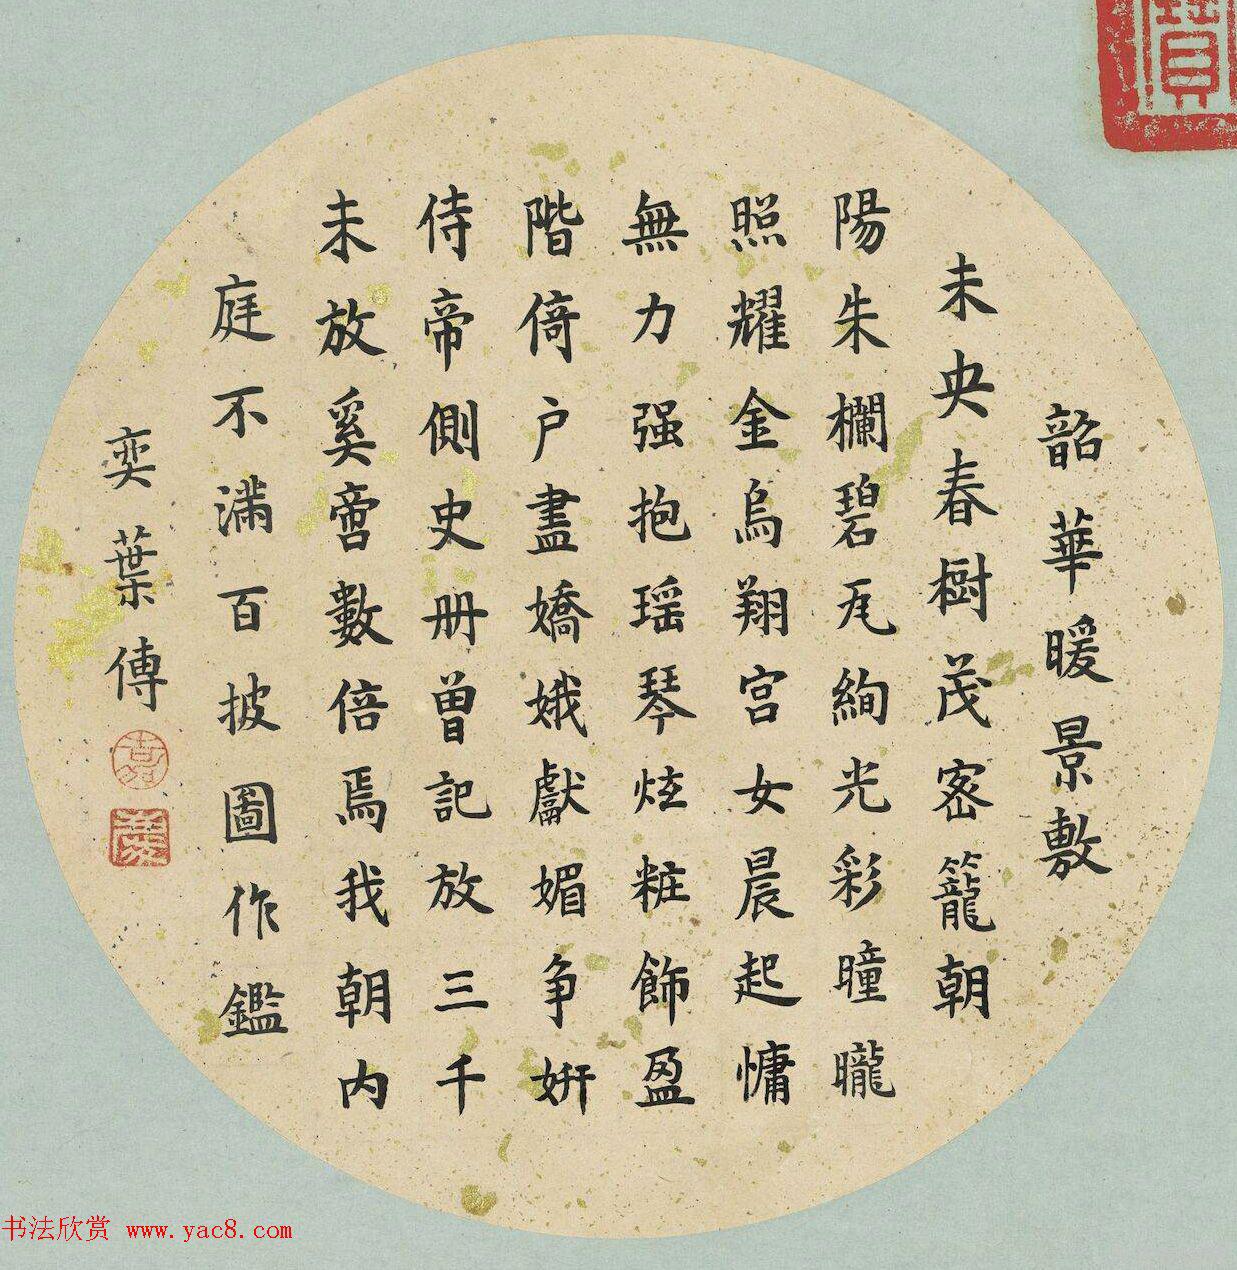 韶華暖景敷
未央春樹茂密籠朝
陽朱欄碧瓦絢光彩曈曨
照耀金烏翔宮女晨起慵
無力强抱瑶琴炫粧飾盈
階倚户盡嬌娥獻媚争妍
侍帝側史册曾記放三千
未放奚啻數倍焉我朝内
庭不滿百披圖作鑑
奕葉傳
書法欣赏 www.yac8.com